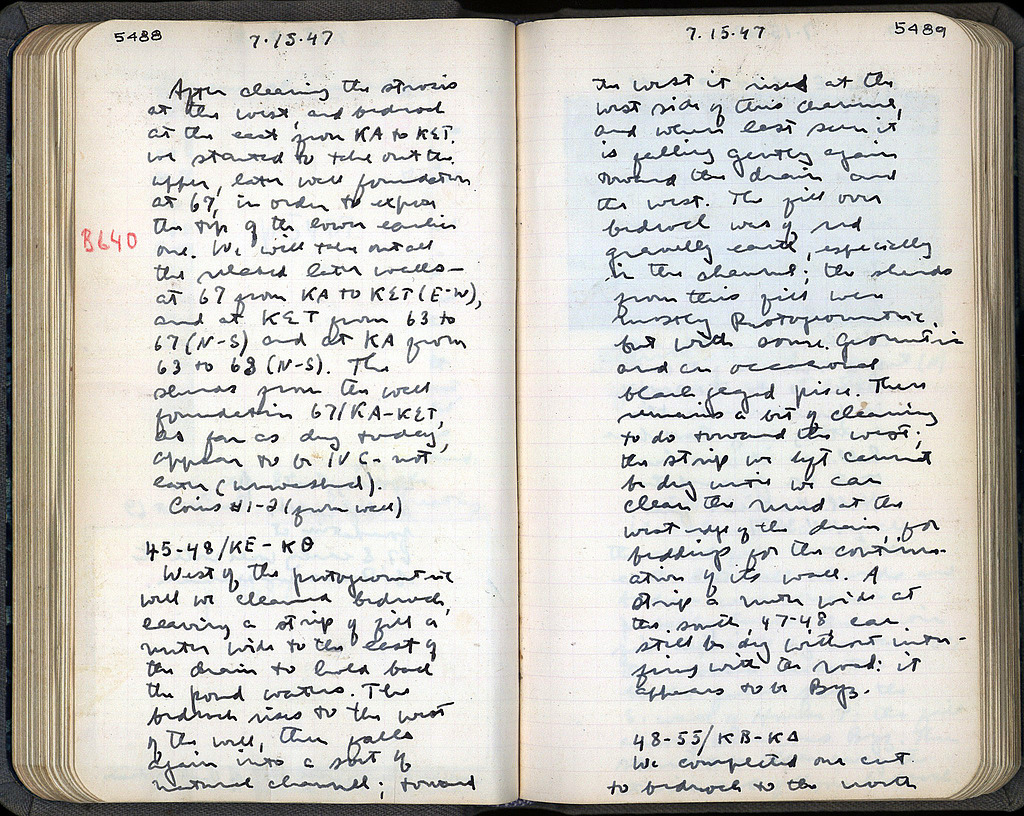 5488 7.15.47
After cleaning the strosis
at the west, and bedrock
at the east from KA to KET,
we started to take out the
upper, later wall foundation
at 67, in order to expose
the top of the lower earlier
one. We will take out all
B640
the related later walls —
at 67 from KA to KET (E-W),
and at KET from 63 to
67 (N-S) and at KA from
63 to 68 (N-S). The
sherds from the wall
foundation 67/KA-KET,
as far as dug today,
appear to be IV C - not
later (unwashed).
Coins #1-2 (from wall)
45-48/KE-KΘ
West of the protogeometric
well we cleared bedrock,
leaving a strip of fill a
meter wide to the east of
the drain to hold back
the pond waters. The
bedrock rises to the west
of the well, then falls
again into a sort of
natural channel; toward
7.15.47 5489
the west it rises at the
west side of this channel,
and when last seen it
is falling gently again
toward the drain and
the west. The fill over
bedrock was of red
gravelly earth, especially
in the channel; the sherds
from this fill were
mostly Protogeometric,
but with some Geometric
and an occasional
black glazed piece. There
remains a bit of cleaning
to do toward the west;
the strip we left cannot
be dug until we can
clean the mud at the
west edge of the drain, for
beddings for the continu-
ation of its wall. A
strip a meter wide at
the south, 47-48 can
still be dug without inter-
fering with the road: it
appears to be Byz.
48-55/KB-KΔ
We completed our cut
to bedrock to the north